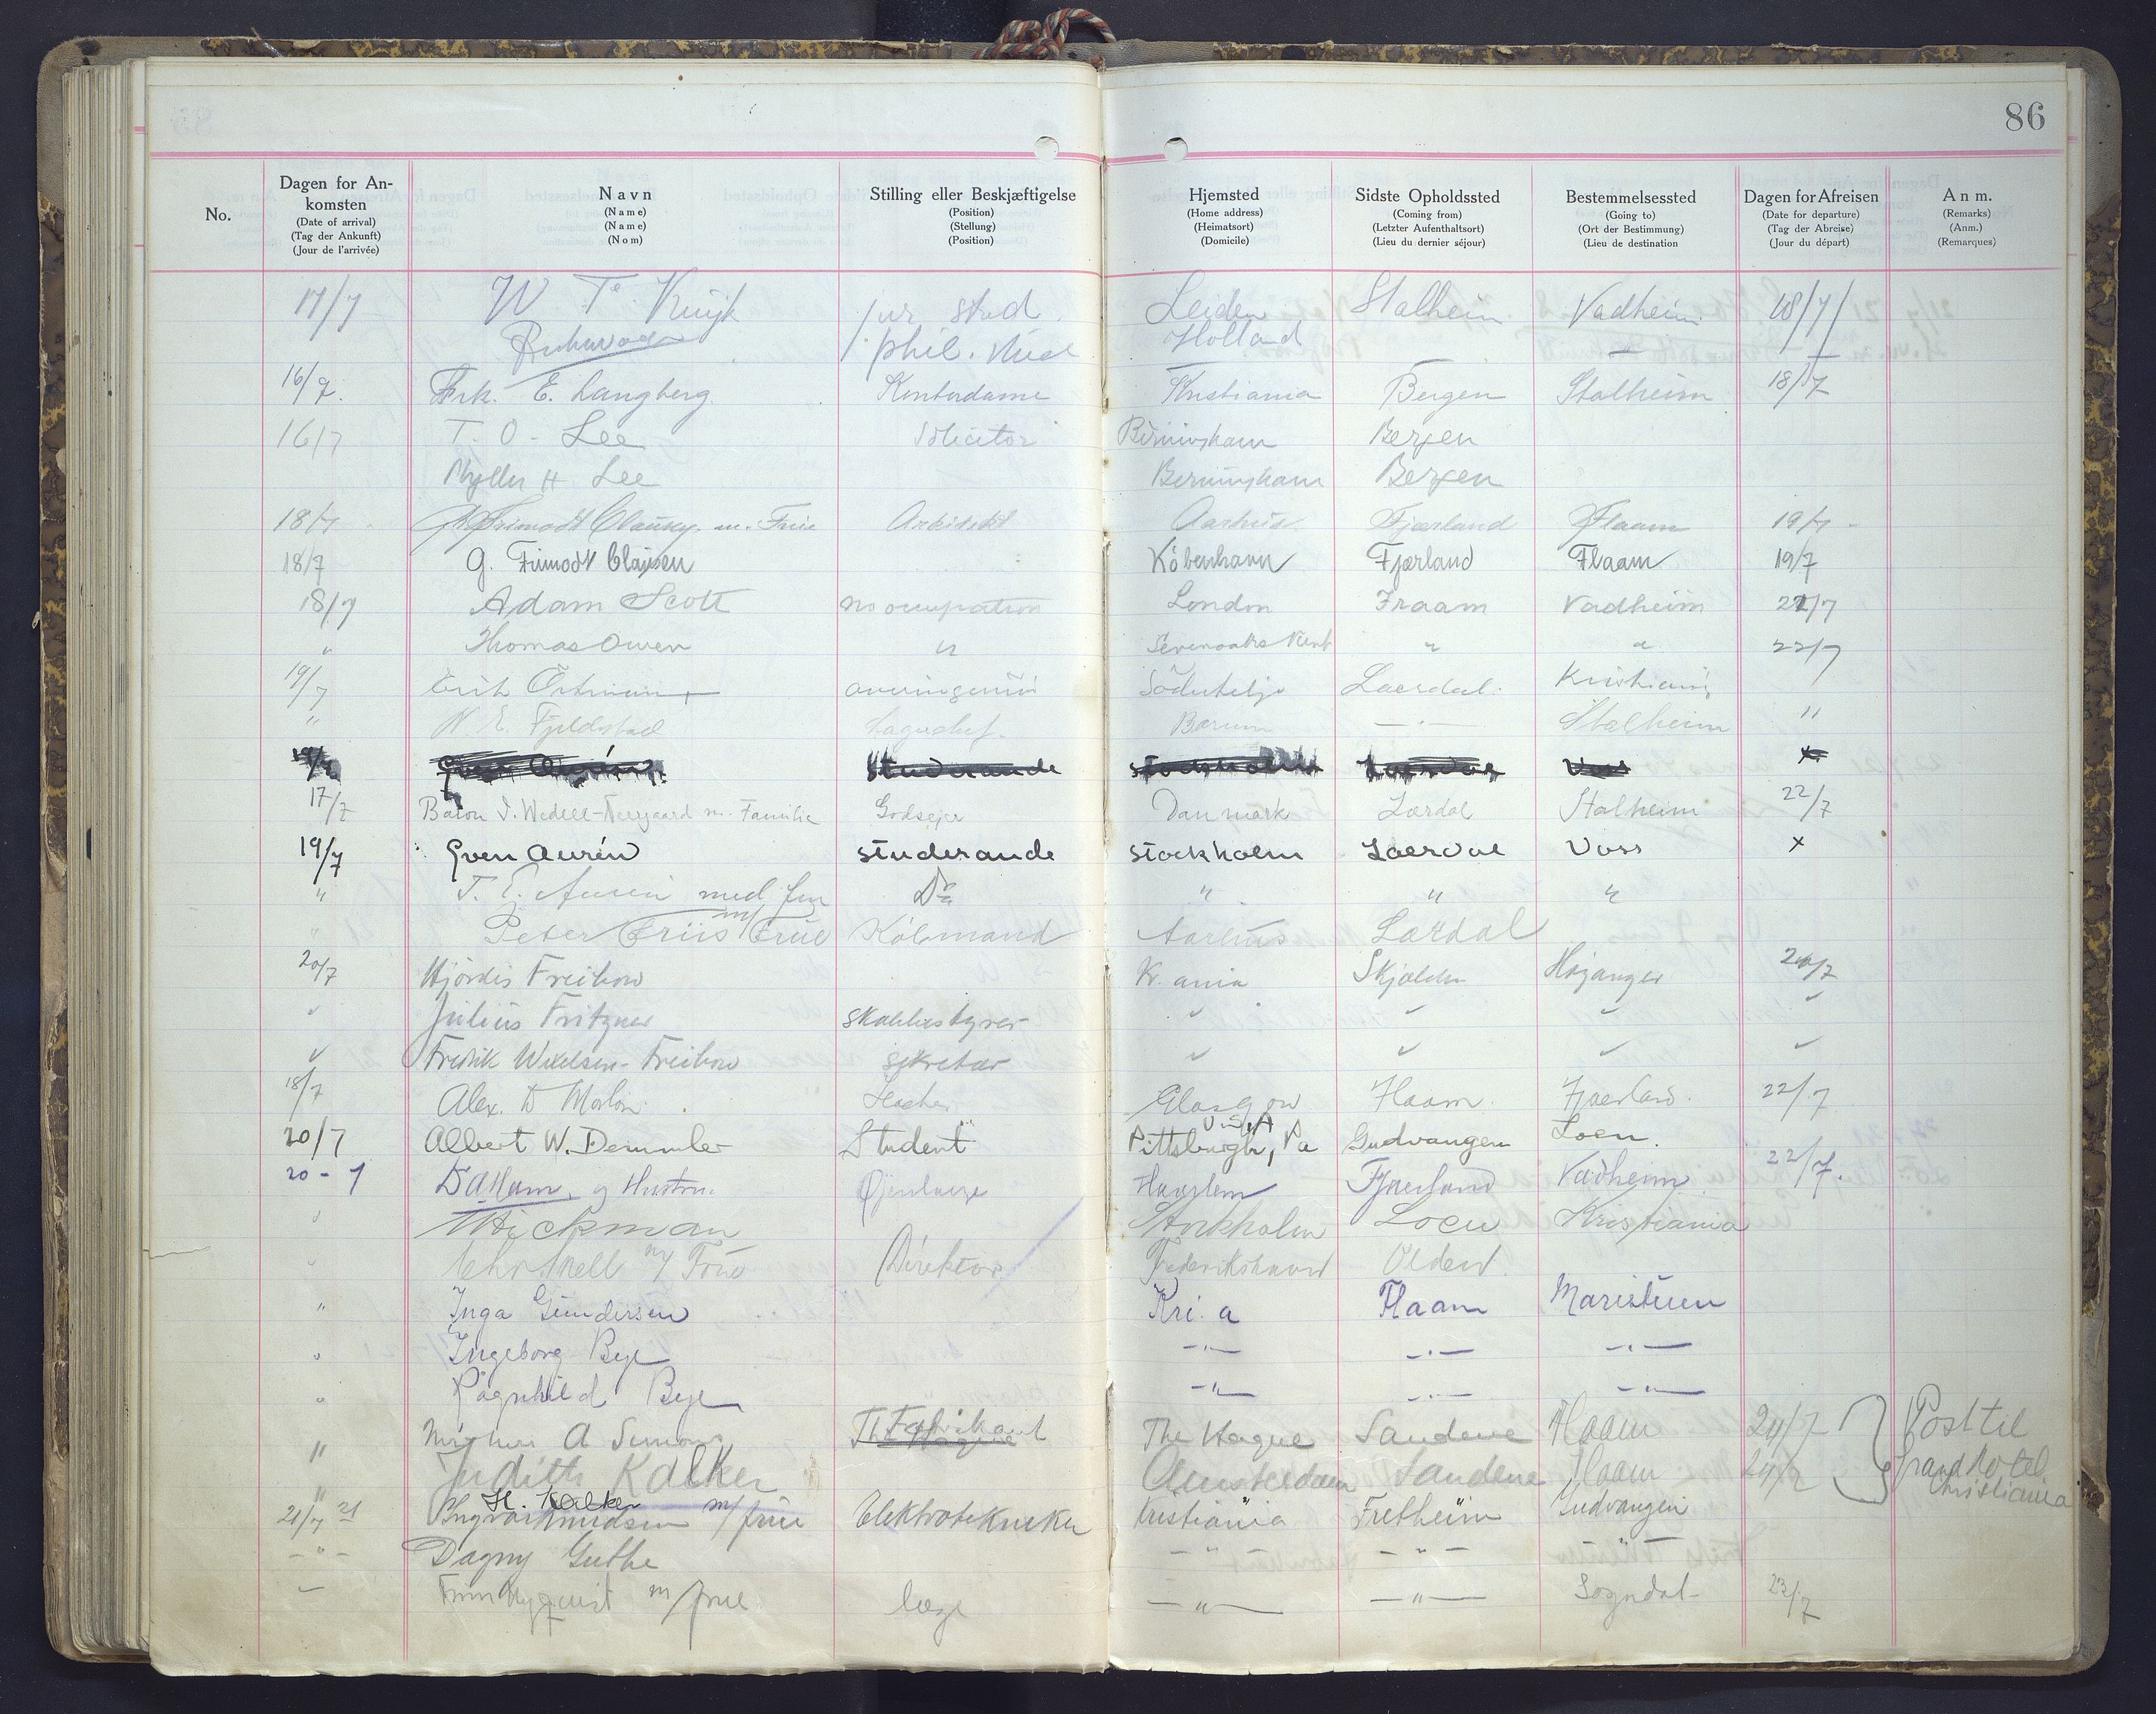 86
No.
Dagen for Ankomsten (Date of arrival) (Tag der Ankunft) (Jour de l'arrivée)
Navn (Name) (Name) (Nom)
Stilling eller Beskjæftigelse (Position) (Stellung) (Position)
Hjemsted (Home address) (Heimatsort) (Domicile)
Sidste Opholdssted (Coming from) (Letzter Aufenthaltsort) (Lieu du dernier séjour)
Bestemmelsessted (Going to) (Ort der Bestimmung) (Lieu de destination
Dagen for Afreisen (Date for departure) (Tag der Abreise) (Jour du départ)
Anm. (Remarks) (Anm.) (Remarques)
17/7 W Te Kuijk jur stud. Leiden Stalheim Vadheim 18/7
phil. Holland
16/7. Frk. E. Langberg Kontordame Kristiania Bergen Stalheim 18/7
16/7 T. O. Lee Solicitor Birmingham Bergen
H Lee Birmingham Bergen
18/7 Frimodt Clausen m. Frue Arkitekt Aarhus. Fjærland Flaam 19/7
18/7 G. Frimodt Clausen Köbenhavn Fjærland Flaam 19/7
18/7 Adam Scott no occupation London Fraam Vadheim 22/7
" Thomas Owen " Sevenoaks Kent " " 22/7
19/7 Erik Södertelje Laerdal. Kristiania "
" N. E. Fjeldstad Bærum — " — Stalheim "
17/7 Baron Wedell-Neergaard m. Familie Godsejer Danmark Lærdal Stalheim 22/7
19/7 Sven Aurén Studerande Stockholm Laerdal Voss x
" T. E. Aurén med fru Dir " " "
" Peter Friis m/ Frue Köbmand Aarhus Lærdal
20/7 Hjördis Freihow Kr.ania Skjolden Höjanger 20/7
" Julius Fritzner " " " "
" Fredrik Wexelsen-Freihow sekretær " " " "
18/7 Alex. D Teacher Glasgow Flaam. Fjaerland. 22/7
20/7 Albert W. Demmler Student Pittsburgh, Pa U.S.A Gudvangen Loen.
20-7 og Hustru. Øjenlæge Haarlem Fjaerland Vadheim 22/7.
" Hickman Stockholm Loen Kristiania
" m/ Frue Direktör Frederikshavn Olden.
" Inga Gundersen Kri.a Flaam Maristuen
" Ingeborg Bye —"— —"— —"—
" Ragnhild Bye —"— —"— —"—
" A Simons Fabrikant The Hague Sandene Flaam 24/7 Post til
" Judith Kalker Amsterdam Sandene Flaam 24/7 Grand Hotel Christiania
" H. Kalker
21/7 21 Ingvar Knudsen m/ frue Elektrotekniker Kristiania Fretheim Gudvangen
—"— Dagny Guthe —"— —"— —"—
— Finn Nyquist m/ frue læge —"— —"— Sogndal 23/7